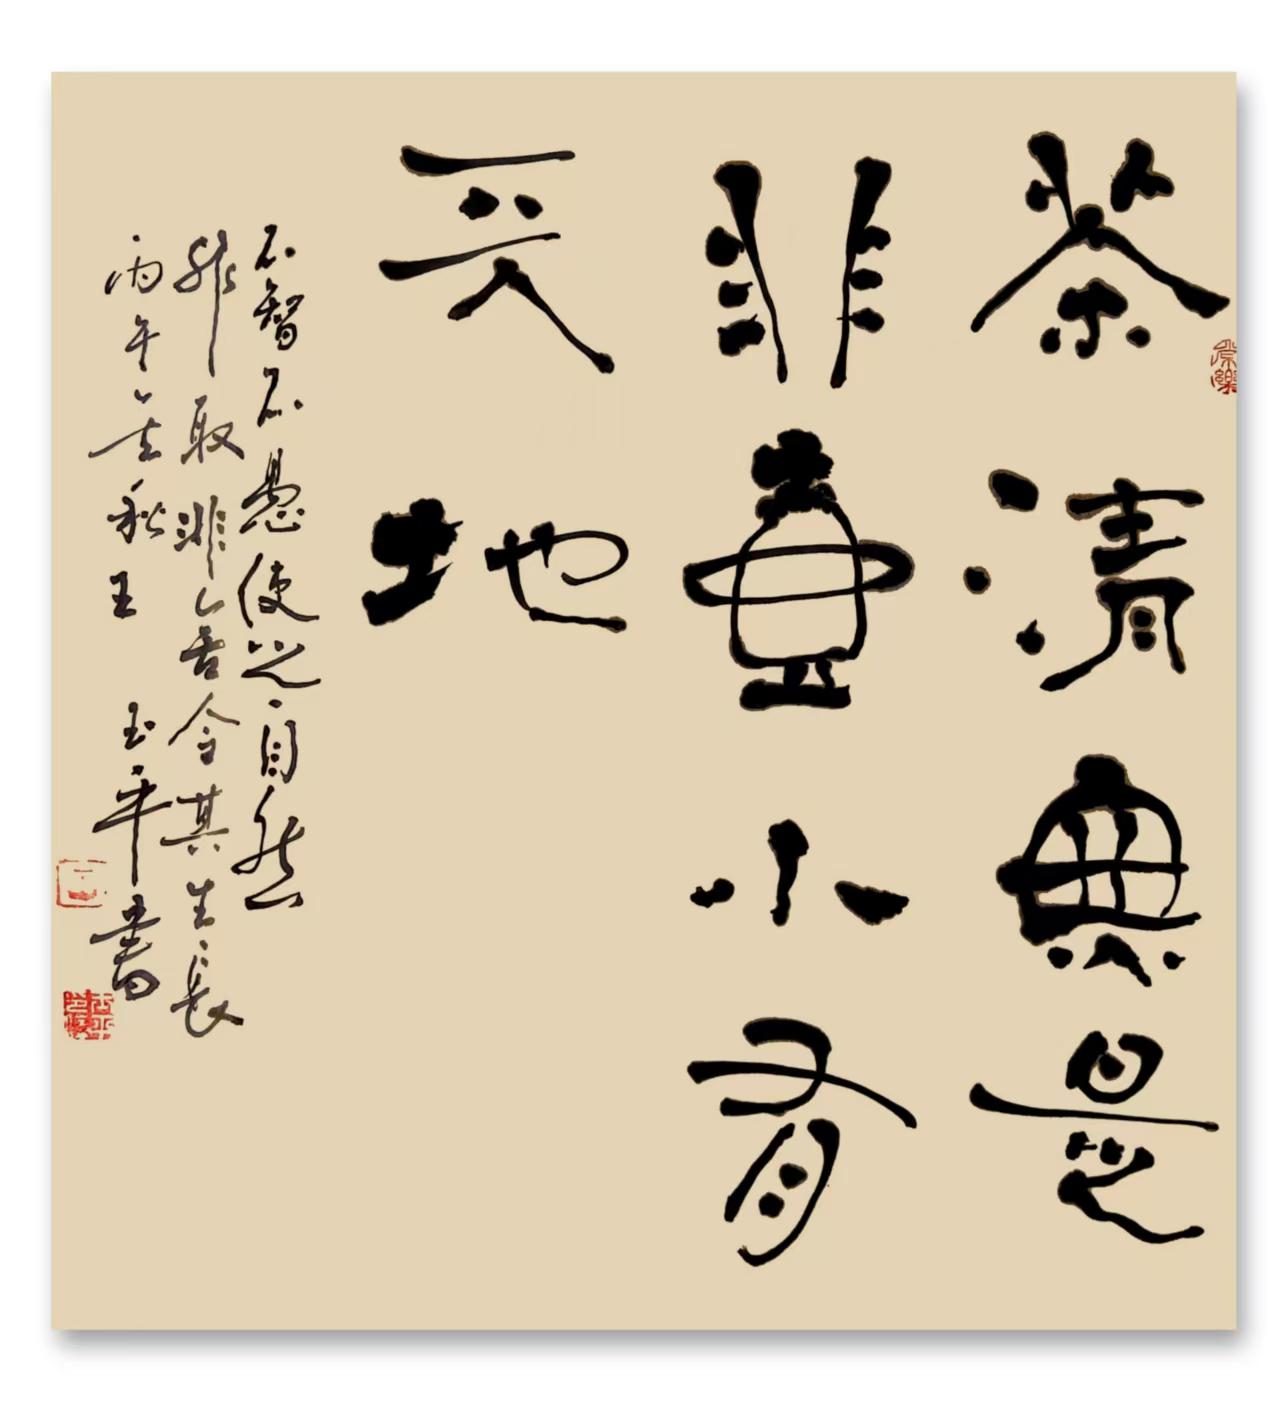 茶清無是
非壺小有
天地
不智不愚使之自然
非取非舍令其生長
丙午秋王玉平書